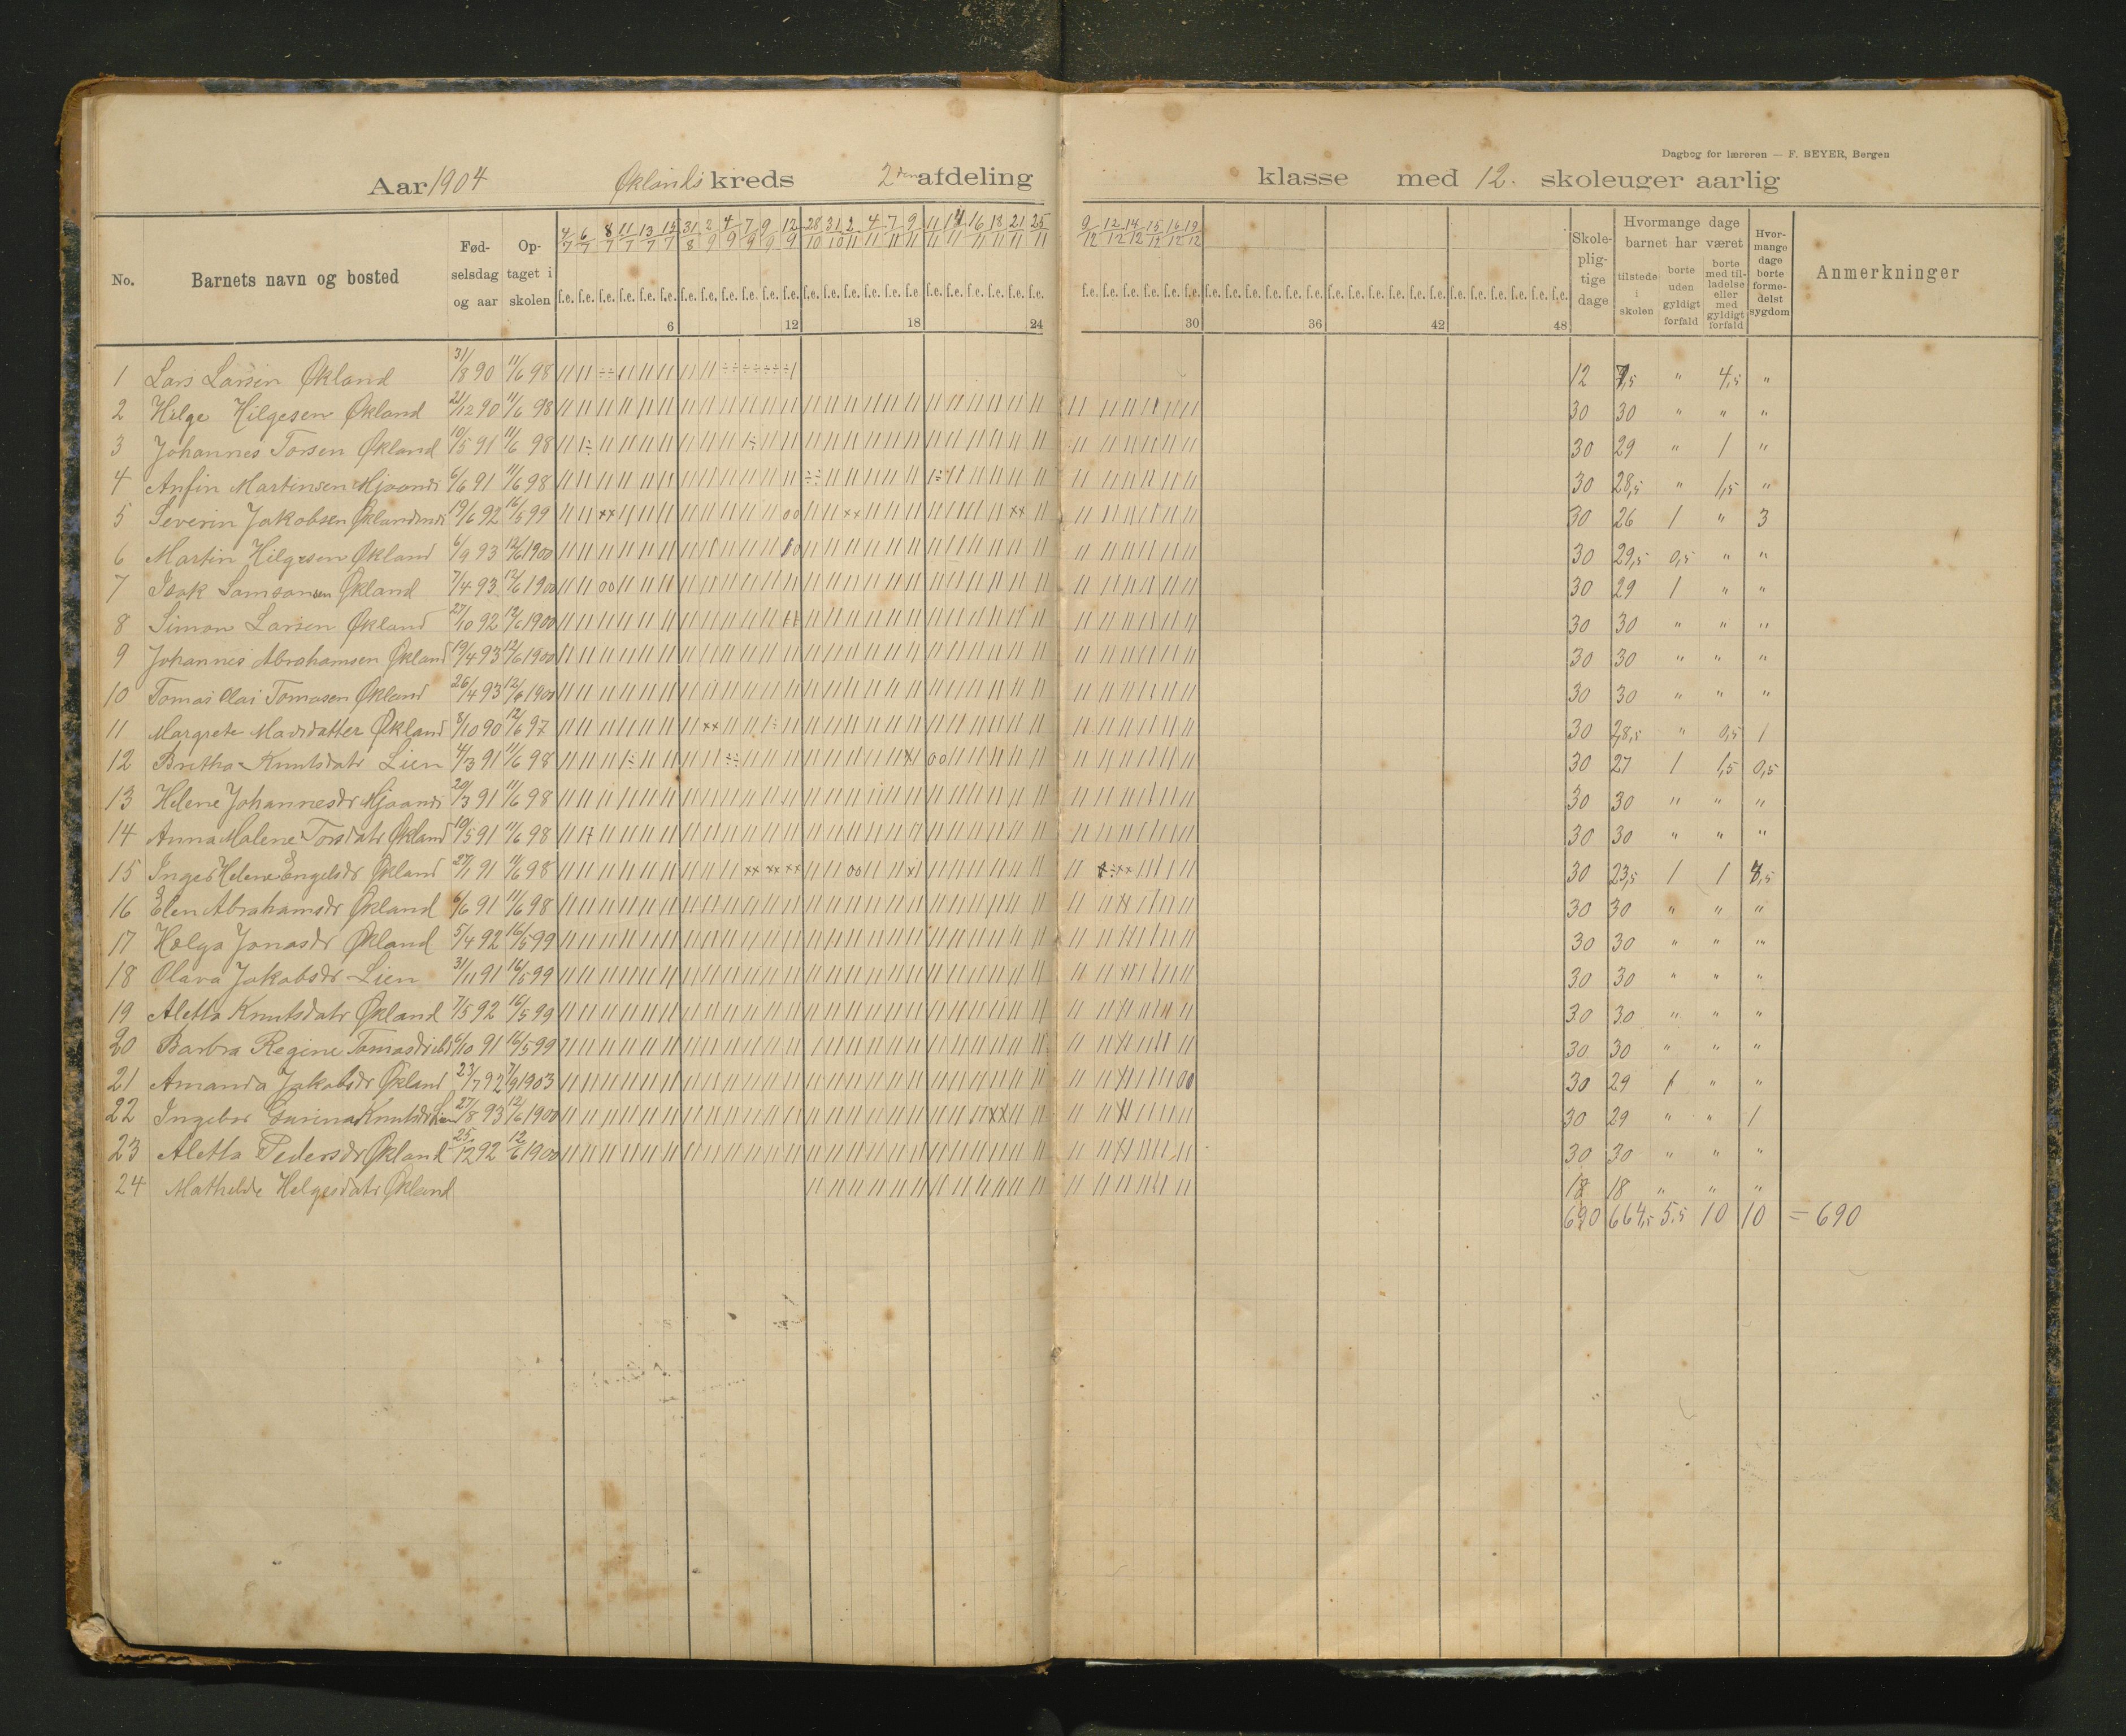 Dagbog for læreren — F. BEYER, Bergen
Aar 1904 Øklands kreds 2den afdeling klasse med 12. skoleuger aarlig
No. Barnets navn og bosted Fødselsdag og aar Optaget i skolen Skolepligtige dage Hvormange dage barnet har været tilstede i skolen borte uden gyldigt forfald borte med tilladelse eller med gyldigt forfald Hvormange dage borte formedelst sygdom Anmerkninger
4/7 6/7 8/7 11/7 13/7 15/7 31/8 2/9 4/9 7/9 9/9 12/9 28/10 31/10 2/11 4/11 7/11 9/11 11/11 14/11 16/11 18/11 21/11 25/11 9/12 12/12 14/12 15/12 16/12 19/12
f.e. f.e. f.e. f.e. f.e. f.e. f.e. f.e. f.e. f.e. f.e. f.e. f.e. f.e. f.e. f.e. f.e. f.e. f.e. f.e. f.e. f.e. f.e. f.e. f.e. f.e. f.e. f.e. f.e. f.e. f.e. f.e. f.e. f.e. f.e. f.e. f.e. f.e. f.e. f.e. f.e. f.e. f.e. f.e. f.e. f.e. f.e. f.e.
6 12 18 24 30 36 42 48
1 Lars Larsen Økland 31/8 90 11/6 98 12 7,5 " 4,5 "
2 Helge Hilgesen Økland 21/12 90 11/6 98 30 30 " " "
3 Johannes Torsen Økland 10/5 91 11/6 98 30 29 " 1 "
4 Anfin Martinsen Mjaanes 6/6 91 11/6 98 30 28,5 " 1,5 "
5 Severin Jakobsen 19/6 92 16/5 99 30 26 1 " 3
6 Martin Hilgesen Økland 6/9 93 12/6 1900 30 29,5 0,5 " "
7 Isak Samsonsen Økland 7/4 93 12/6 1900 30 29 1 " "
8 Simon Larsen Økland 27/10 92 12/6 1900 30 30 " " "
9 Johannes Abrahamsen Økland 19/4 93 12/6 1900 30 30 " " "
10 Tomas Olai Tomasen Økland 26/4 93 12/6 1900 30 30 " " "
11 Margrete Madsdatter Økland 8/10 90 12/6 97 30 28,5 " 0,5 1
12 Bretha Knutsdatr Lien 4/3 91 11/6 98 30 27 1 1,5 0,5
13 Helene Johannesdr Mjaanes 20/3 91 11/6 98 30 30 " " "
14 Anna Malene Torsdatr Økland 10/5 91 11/6 98 30 30 " " "
15 Inger Helene Engelsdr Økland 27/1 91 11/6 98 30 23,5 1 1 4,5
16 Elen Abrahamsdr Økland 6/6 91 11/6 98 30 30 " " "
17 Helga Jonasdr Økland 5/4 92 16/5 99 30 30 " " "
18 Olava Jakobsdr Lien 31/11 91 16/5 99 30 30 " " "
19 Aletta Knutsdatr Økland 7/5 92 16/5 99 30 30 " " "
20 Barbra Regine Tomasdr 6/10 91 16/5 99 30 30 " " "
21 Amanda Jakobsdr Økland 23/7 92 7/9 1903 30 29 1 " "
22 Ingebor Gurina Knutsdr Lien 27/8 93 12/6 1900 30 29 " " 1
23 Aletta Pedersdr Økland 25/12 92 12/6 1900 30 30 " " "
24 Mathilde Helgesdatr Økland 18 18 " " "
690 664,5 5,5 10 10 = 690